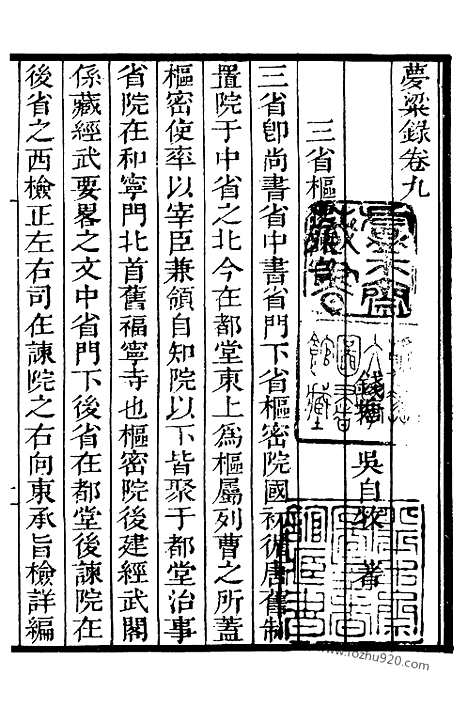 夢粱錄卷九
錢塘 吳自牧 著
三省樞使
三省卽尚書省中書省門下省樞密院國初循唐舊制
置院于中省之北今在都堂東上爲樞屬列曹之所蓋
樞密使率以宰臣兼領自知院以下皆聚于都堂治事
省院在和寧門北首舊福寧寺也樞密院後建經武閣
係藏經武要畧之文中省門下後省在都堂後諫院在
後省之西檢正左右司在諫院之右向東承旨檢詳編
www.fozhu920.com